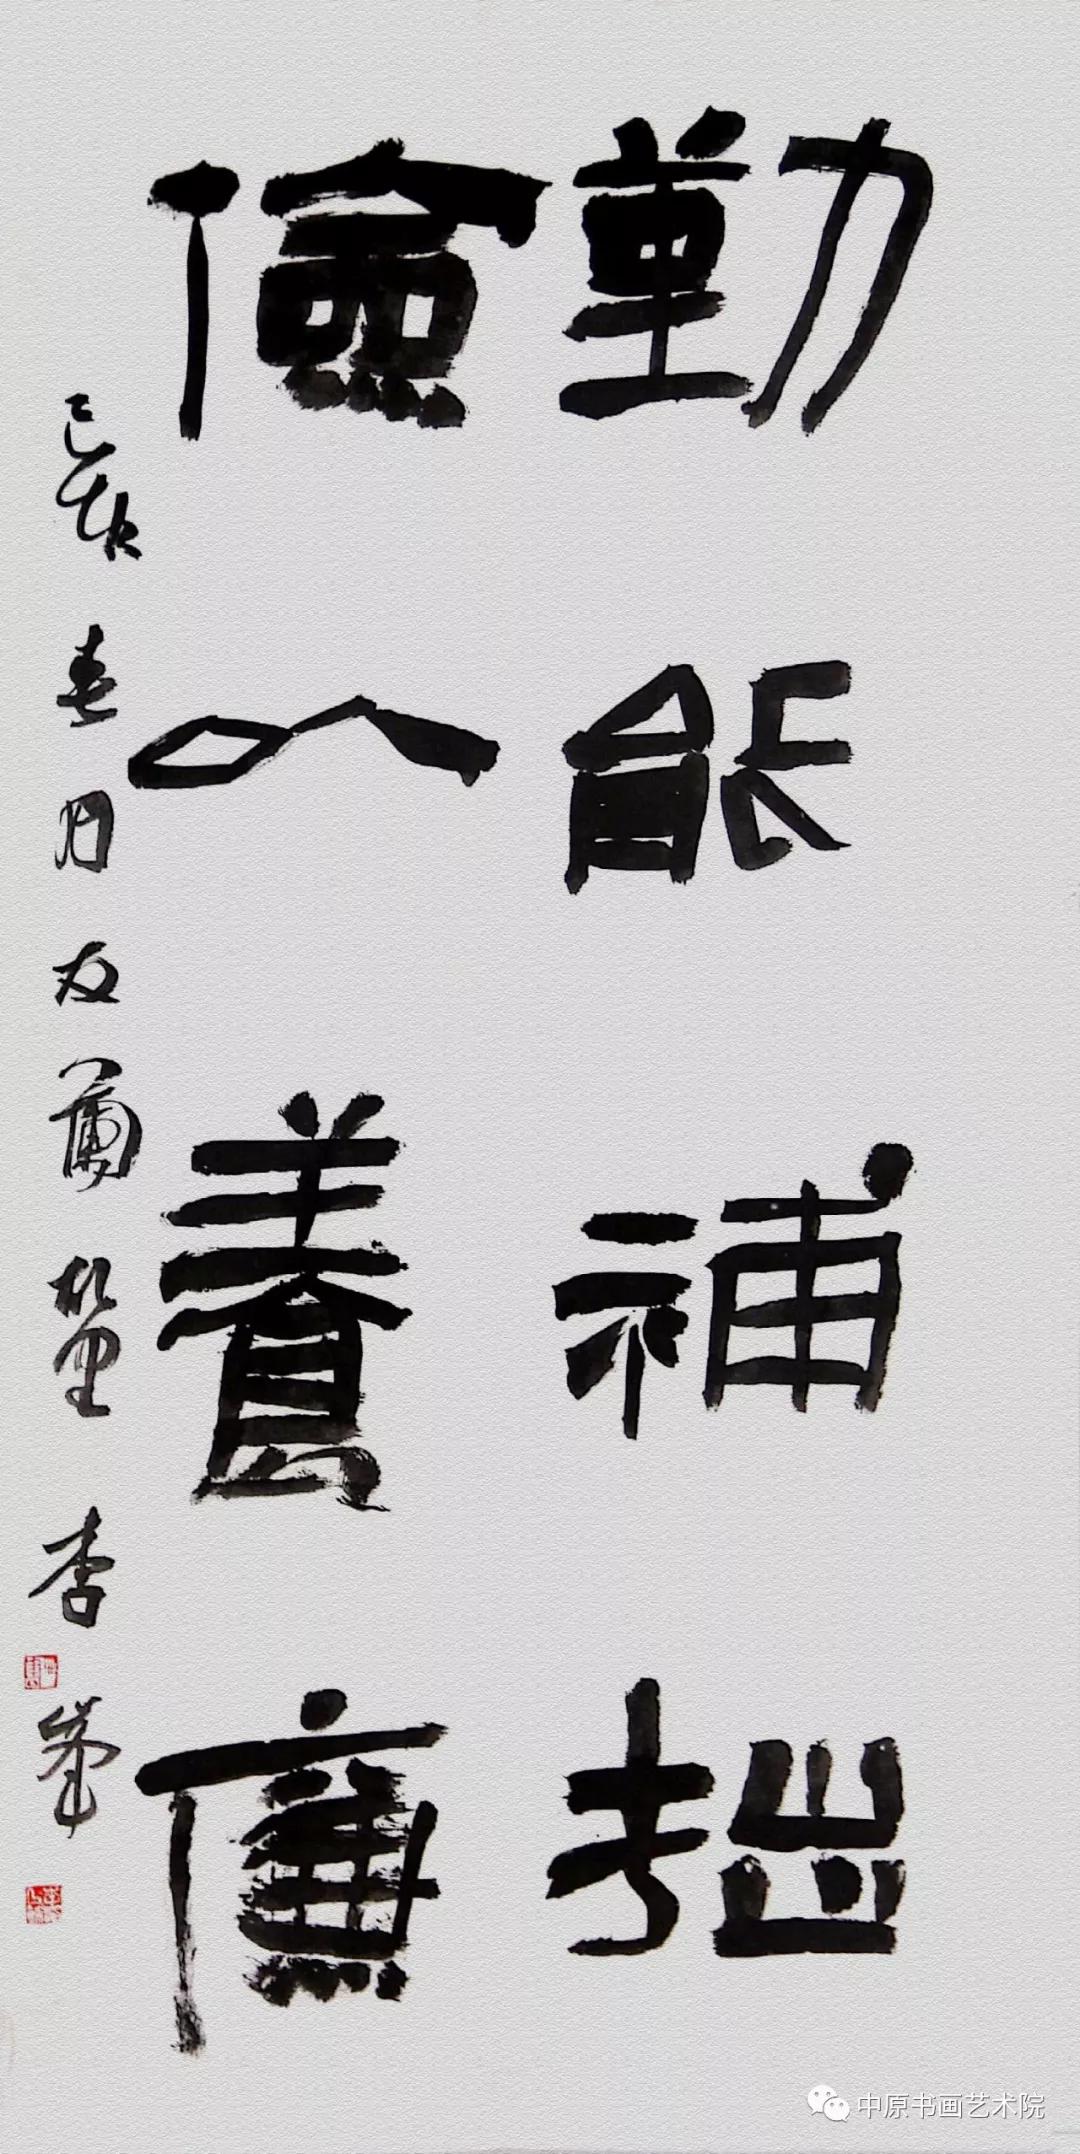 勤能補拙
儉以養廉
己亥春月友蘭堂李峯
中原书画艺术院